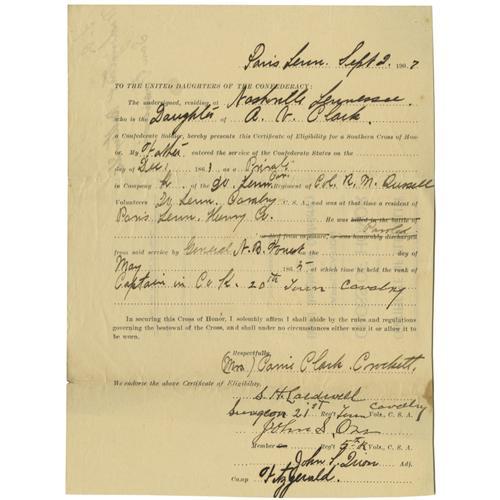 Paris Tenn. Sept 2, 1907
TO THE UNITED DAUGHTERS OF THE CONFEDERACY:
The undersigned, residing at Nashville Tennessee
who is the Daughter of A. V. Clark.
a Confederate Soldier, hereby presents this Certificate of Eligibility for a Southern Cross of Hon-
or. My Father entered the service of the Confederate States on the
day of Dec, 1861 as a Private
in Company K of the 20 Tenn Cav. Regiment of Col. R. M. Russell
Volunteers 20 Tenn. Cavalry C. S. A., and was at that time a resident of
Paris Tenn. Henry Co. He was killed in the battle of
Paroled
died from exposure, or was honorably discharged
from said service by General N. B. Forrest on the day of
May 1865 at which time he held the rank of
Captain in Co K. 20th Tenn Cavalry
In securing this Cross of Honor, I solemnly affirm I shall abide by the rules and regulations
governing the bestowal of the Cross, and shall under no circumstances either wear it or allow it
to be worn.
Respectfully,
(Mrs.) Carrie Clark Crockett.
We endorse the above Certificate of Eligibility.
S. H. Caldwell
Surgeon 21st Reg't Tenn Cavalry Vols., C. S. A.
John S.
Member Reg't 5th Vols., C. S. A.
John Adj.
Camp Fitzgerald.